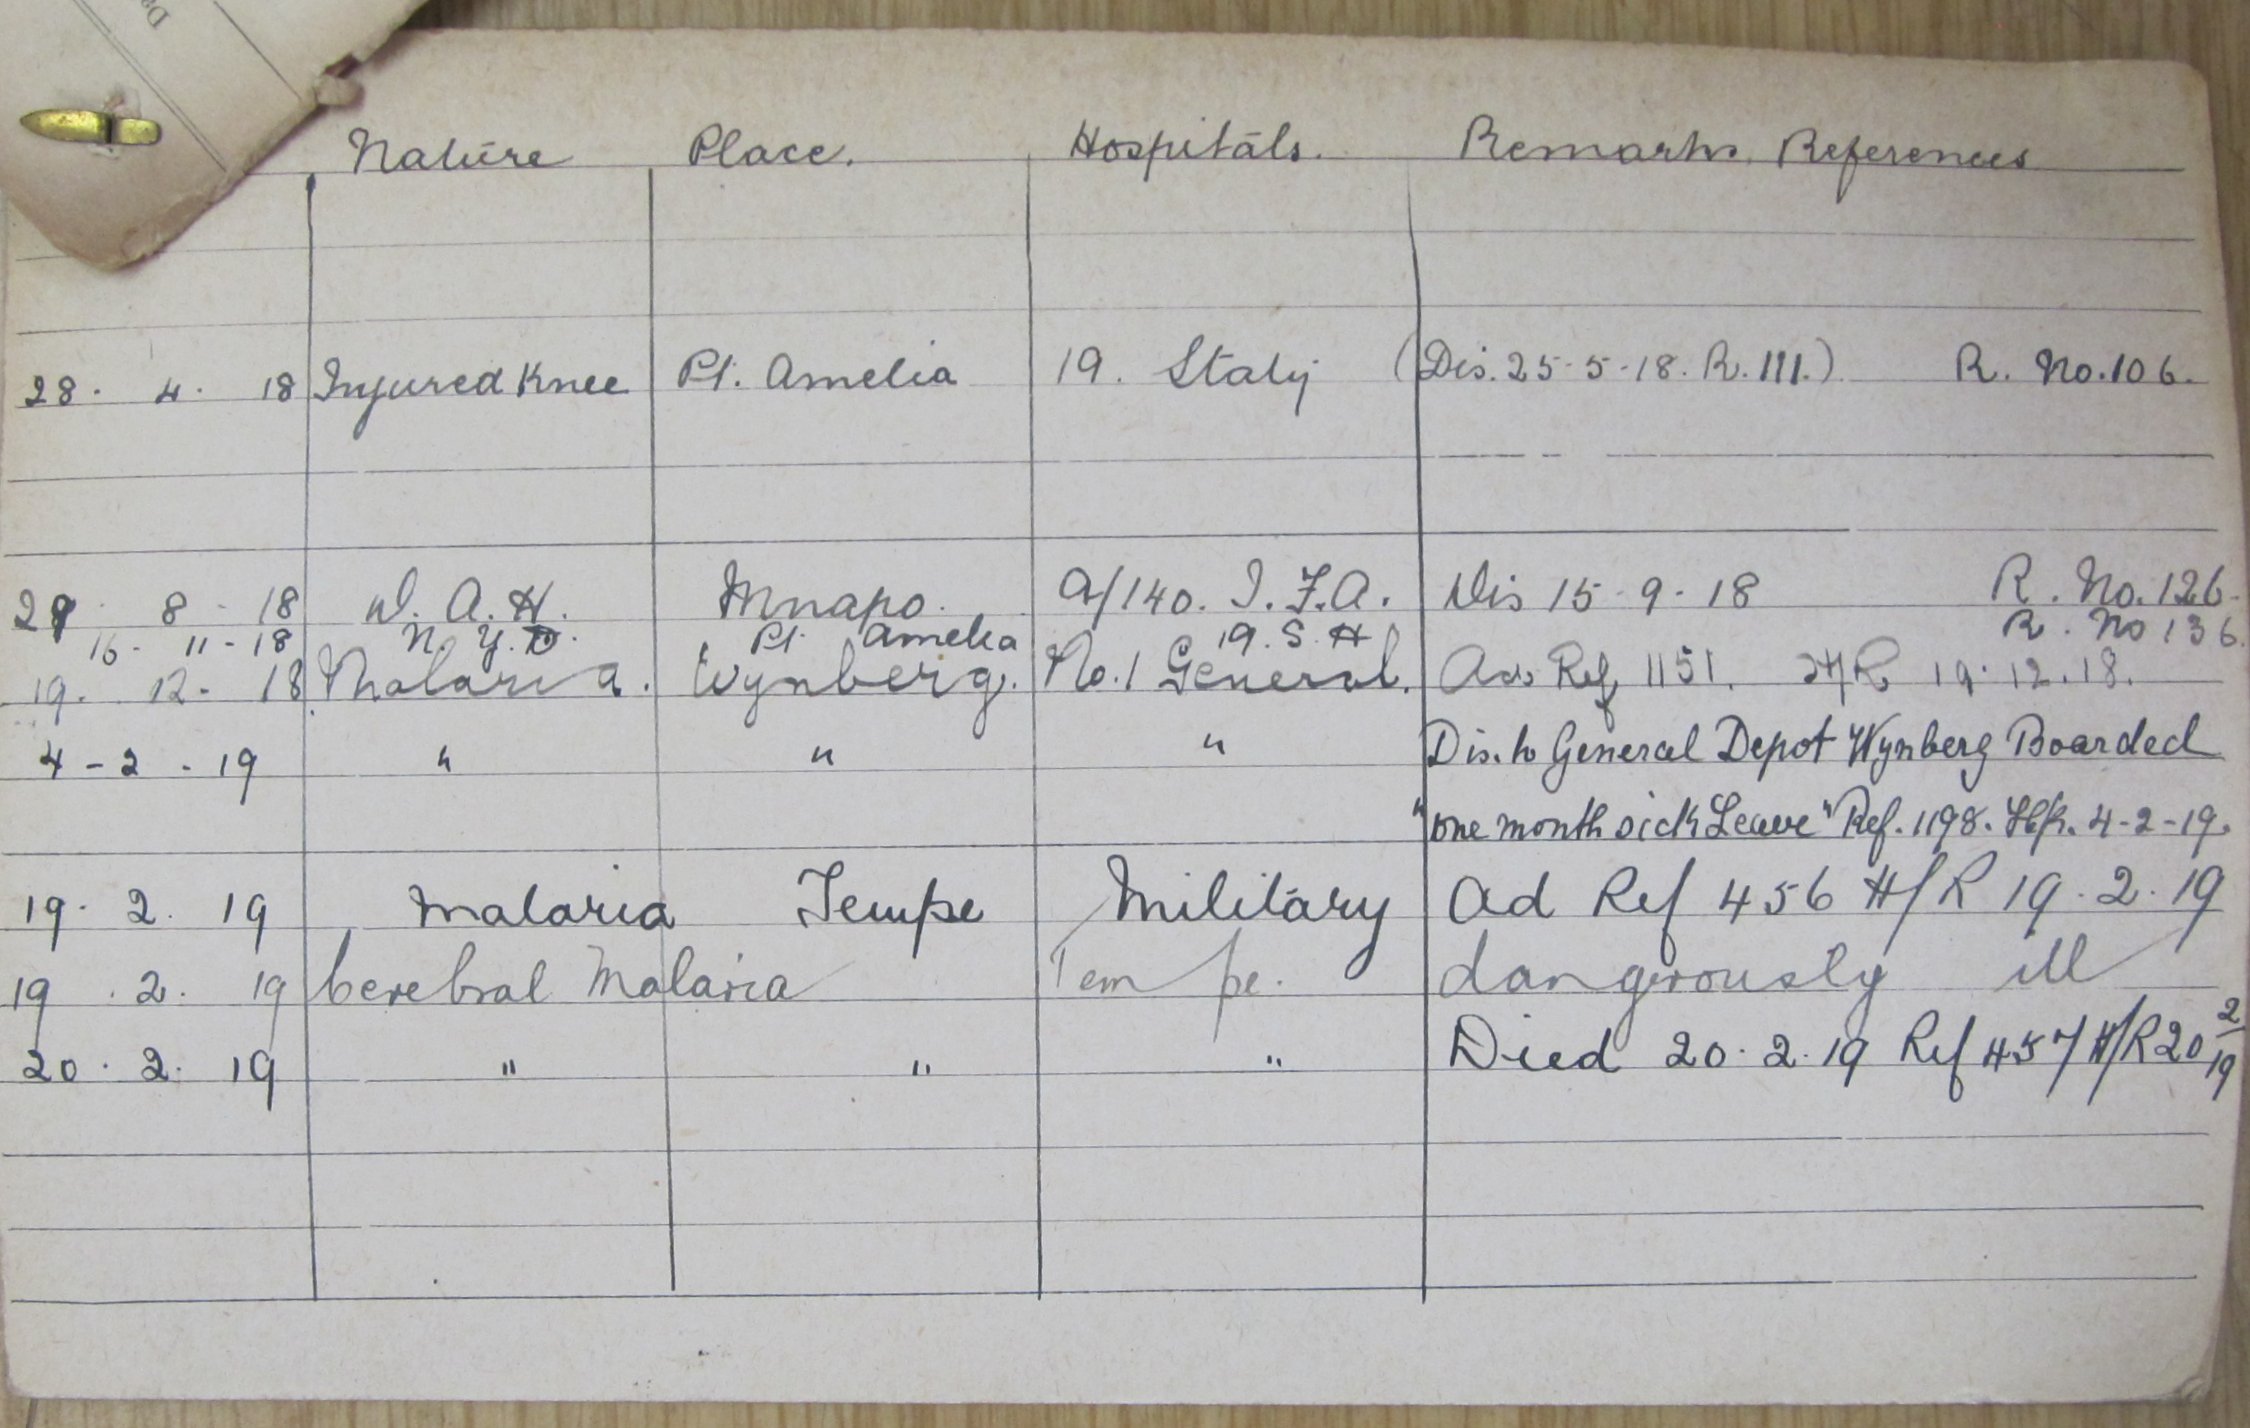 Da
Nature Place. Hospitals. Remarks References
28. 4. 18 Injured Knee Pt. Amelia 19. Staty (Dis. 25-5-18. R. 111.) R. No. 106.
8 - 18 D. A. H. Mnapo. A/140. I. F. A. Dis 15-9-18 R. No. 126.
16 - 11 - 18 N. Y. D. Pt Amelia 19. S. H R. No 136.
19. 12. 18 Malaria. Wynberg. No. 1 General. Ad. Ref 1151. H/R 19.12.18.
4 - 2 - 19 " " " Dis. to General Depot Wynberg Boarded
"one month sick Leave" Ref. 1198. H/R. 4-2-19.
19. 2. 19 Malaria Tempe Military Ad Ref 456 H/R 19.2.19
19. 2. 19 Cerebral Malaria Tempe. dangerously ill
20. 2. 19 " " " Died 20.2.19 Ref 457 H/R 20 2/19